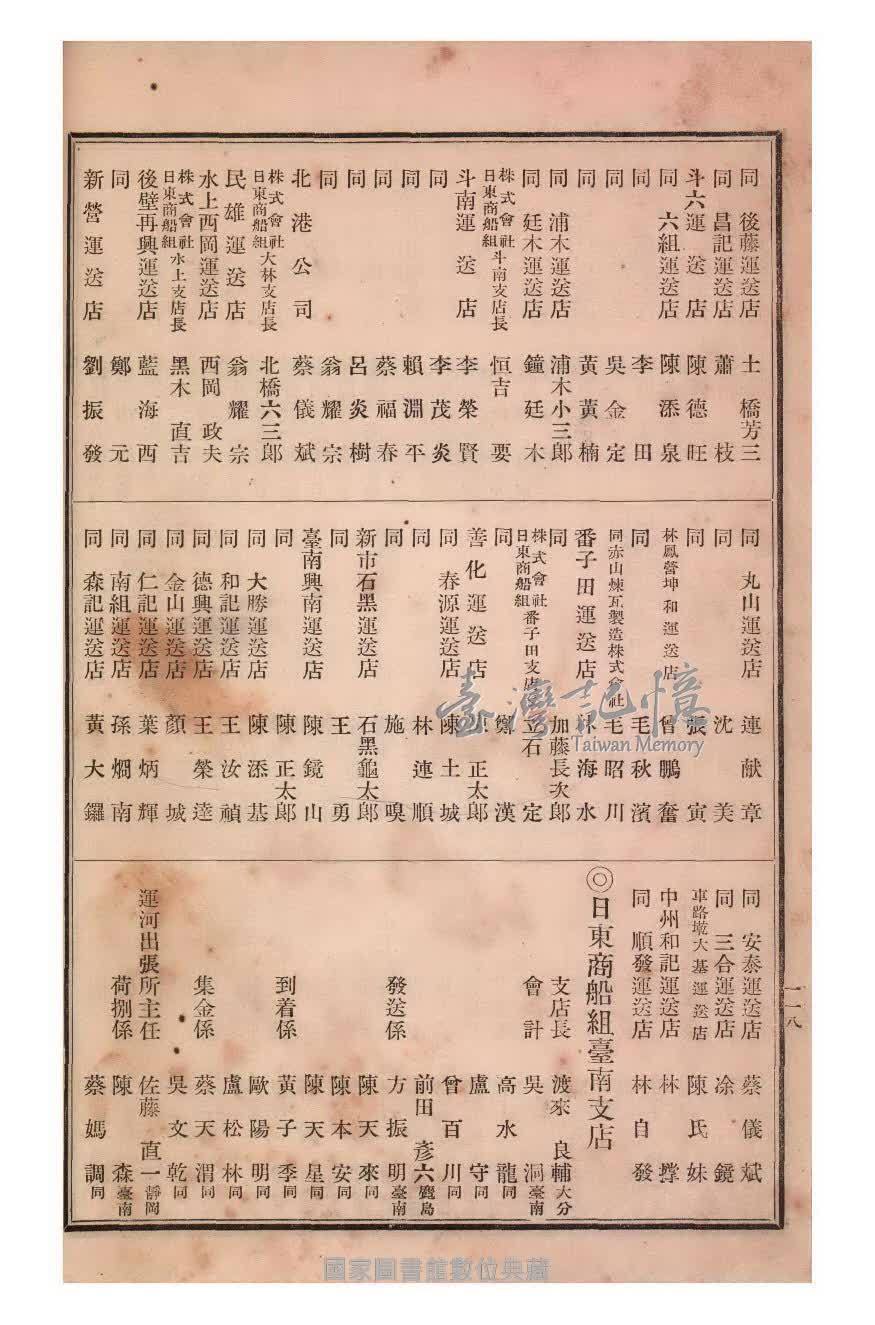 同　後藤運送店　土橋芳三
同　昌記運送店　蕭枝
斗六運送店　陳德旺
同　六組運送店　陳添泉
同　李田
同　吳金定
同　黃黃楠
同　浦木運送店　浦木小三郎
同　廷木運送店　鐘廷木
株式會社日東商船組斗南支店長　恒吉要
斗南運送店　李榮賢
同　李茂炎
同　賴淵平
同　蔡福春
同　呂炎樹
同　翁耀宗
北港公司　蔡儀斌
株式會社日東商船組大林支店長　北橋六三郎
民雄運送店　翁耀宗
水上西岡運送店　西岡政夫
株式會社日東商船組水上支店長　黑木直吉
後壁再興運送店　藍海西
同　鄭元
新營運送店　劉振發
同　丸山運送店　連献章
同　沈美
同　張寅
林鳳營坤和運送店　曾鵬奮
同　毛秋濱
同赤山煉瓦製造株式會社　毛昭川
番子田運送店　林海水
同　加藤長次郎
株式會社日東商船組番子田支店　立石定
同　鄭漢
善化運送店　正太郎
同　春源運送店　陳土城
同　林連順
同　施嗅
新市石黑運送店　石黑龜太郎
同　王勇
臺南興南運送店　陳鏡山
同　陳正太郎
同　大勝運送店　陳添基
同　和記運送店　王汝禎
同　德興運送店　王榮逵
同　金山運送店　顏城
同　仁記運送店　葉炳輝
同　南組運送店　孫烱南
同　森記運送店　黃大鑼
同　安泰運送店　蔡儀斌
同　三合運送店　凃鏡
車路墘大基運送店　陳氏妹
中州和記運送店　林撑
同　順發運送店　林自發
◎日東商船組臺南支店
支店長　渡來良輔　大分
會計　吳洞　臺南
高水龍　同
盧守　同
曾百川　同
前田彥六　鹿島
發送係　方振明　臺南
陳天來　同
陳本安　同
陳天星　同
到着係　黃子季　同
歐陽明　同
盧松林　同
集金係　蔡天渭　同
吳文乾　同
運河出張所主任　佐藤直一　靜岡
荷捌係　陳森　臺南
蔡媽調　同
一一八
臺灣記憶
Taiwan Memory
國家圖書館數位典藏